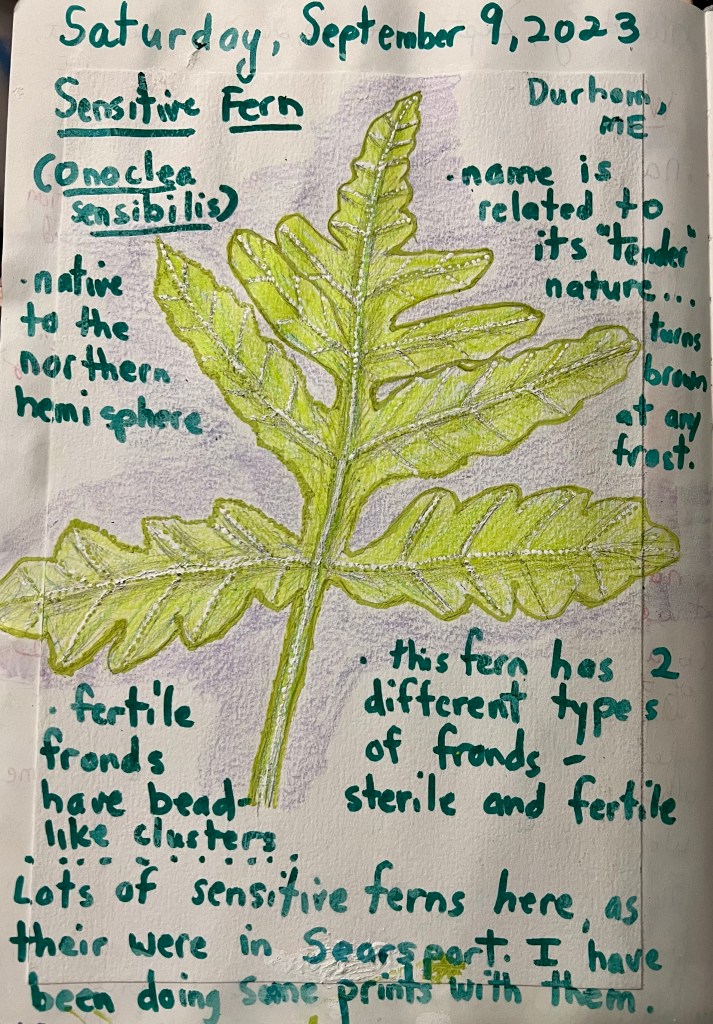 Saturday, September 9, 2023
Sensitive Fern
(Onoclea
sensibilis)
Durham,
ME
·name is
related to
its "tender"
nature...
turns
brown
at any
frost.
·native
to the
northern
hemisphere
·fertile
fronds
have bead-
like clusters
· this fern has 2
different types
of fronds -
sterile and fertile
Lots of sensitive ferns here, as
their were in Searsport. I have
been doing some prints with them.